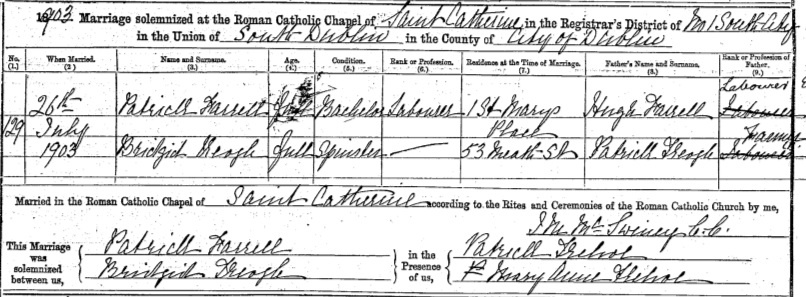 1903. Marriage solemnized at the Roman Catholic Chapel of Saint Catherine in the Registrar's District of No 1 South City
in the Union of South Dublin in the County of City of Dublin
No. When Married. Name and Surname. Age. Condition. Rank or Profession. Residence at the Time of Marriage. Father's Name and Surname. Rank or Profession of Father.
(1.) (2.) (3.) (4.) (5.) (6.) (7.) (8.) (9.)
Labourer
26th Patrick Farrell Full Bachelor Labourer 1 St Marys Place Hugh Farrell Labourer
129 July
1903 Bridgid Keogh Full Spinster — 53 Meath St Patrick Keogh Labourer
Married in the Roman Catholic Chapel of Saint Catherine according to the Rites and Ceremonies of the Roman Catholic Church by me,
J. M. McSwiney C.C.
This Marriage was solemnized between us,
Patrick Farrell
Bridgid Keogh
in the Presence of us,
Patrick
Mary Anne